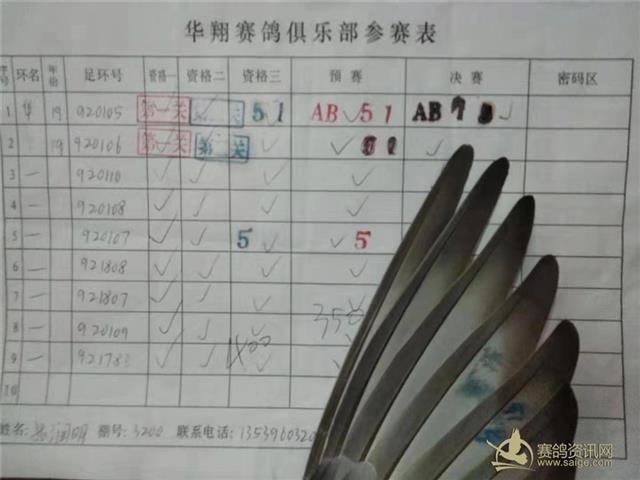 华翔赛鸽俱乐部参赛表
序号 环名 年份 足环号 资格一 资格二 资格三 预赛 决赛 密码区
1 华 19 920105 第一关 51 AB 51 AB
2 19 920106 第一关 第 关
3 920110
4 920108
5 920107 5 5
6 921808
7 921807
8 920109
9 921783 400
10
姓名: 棚号: 3200 联系电话:
赛鸽资讯网
www.saige.com